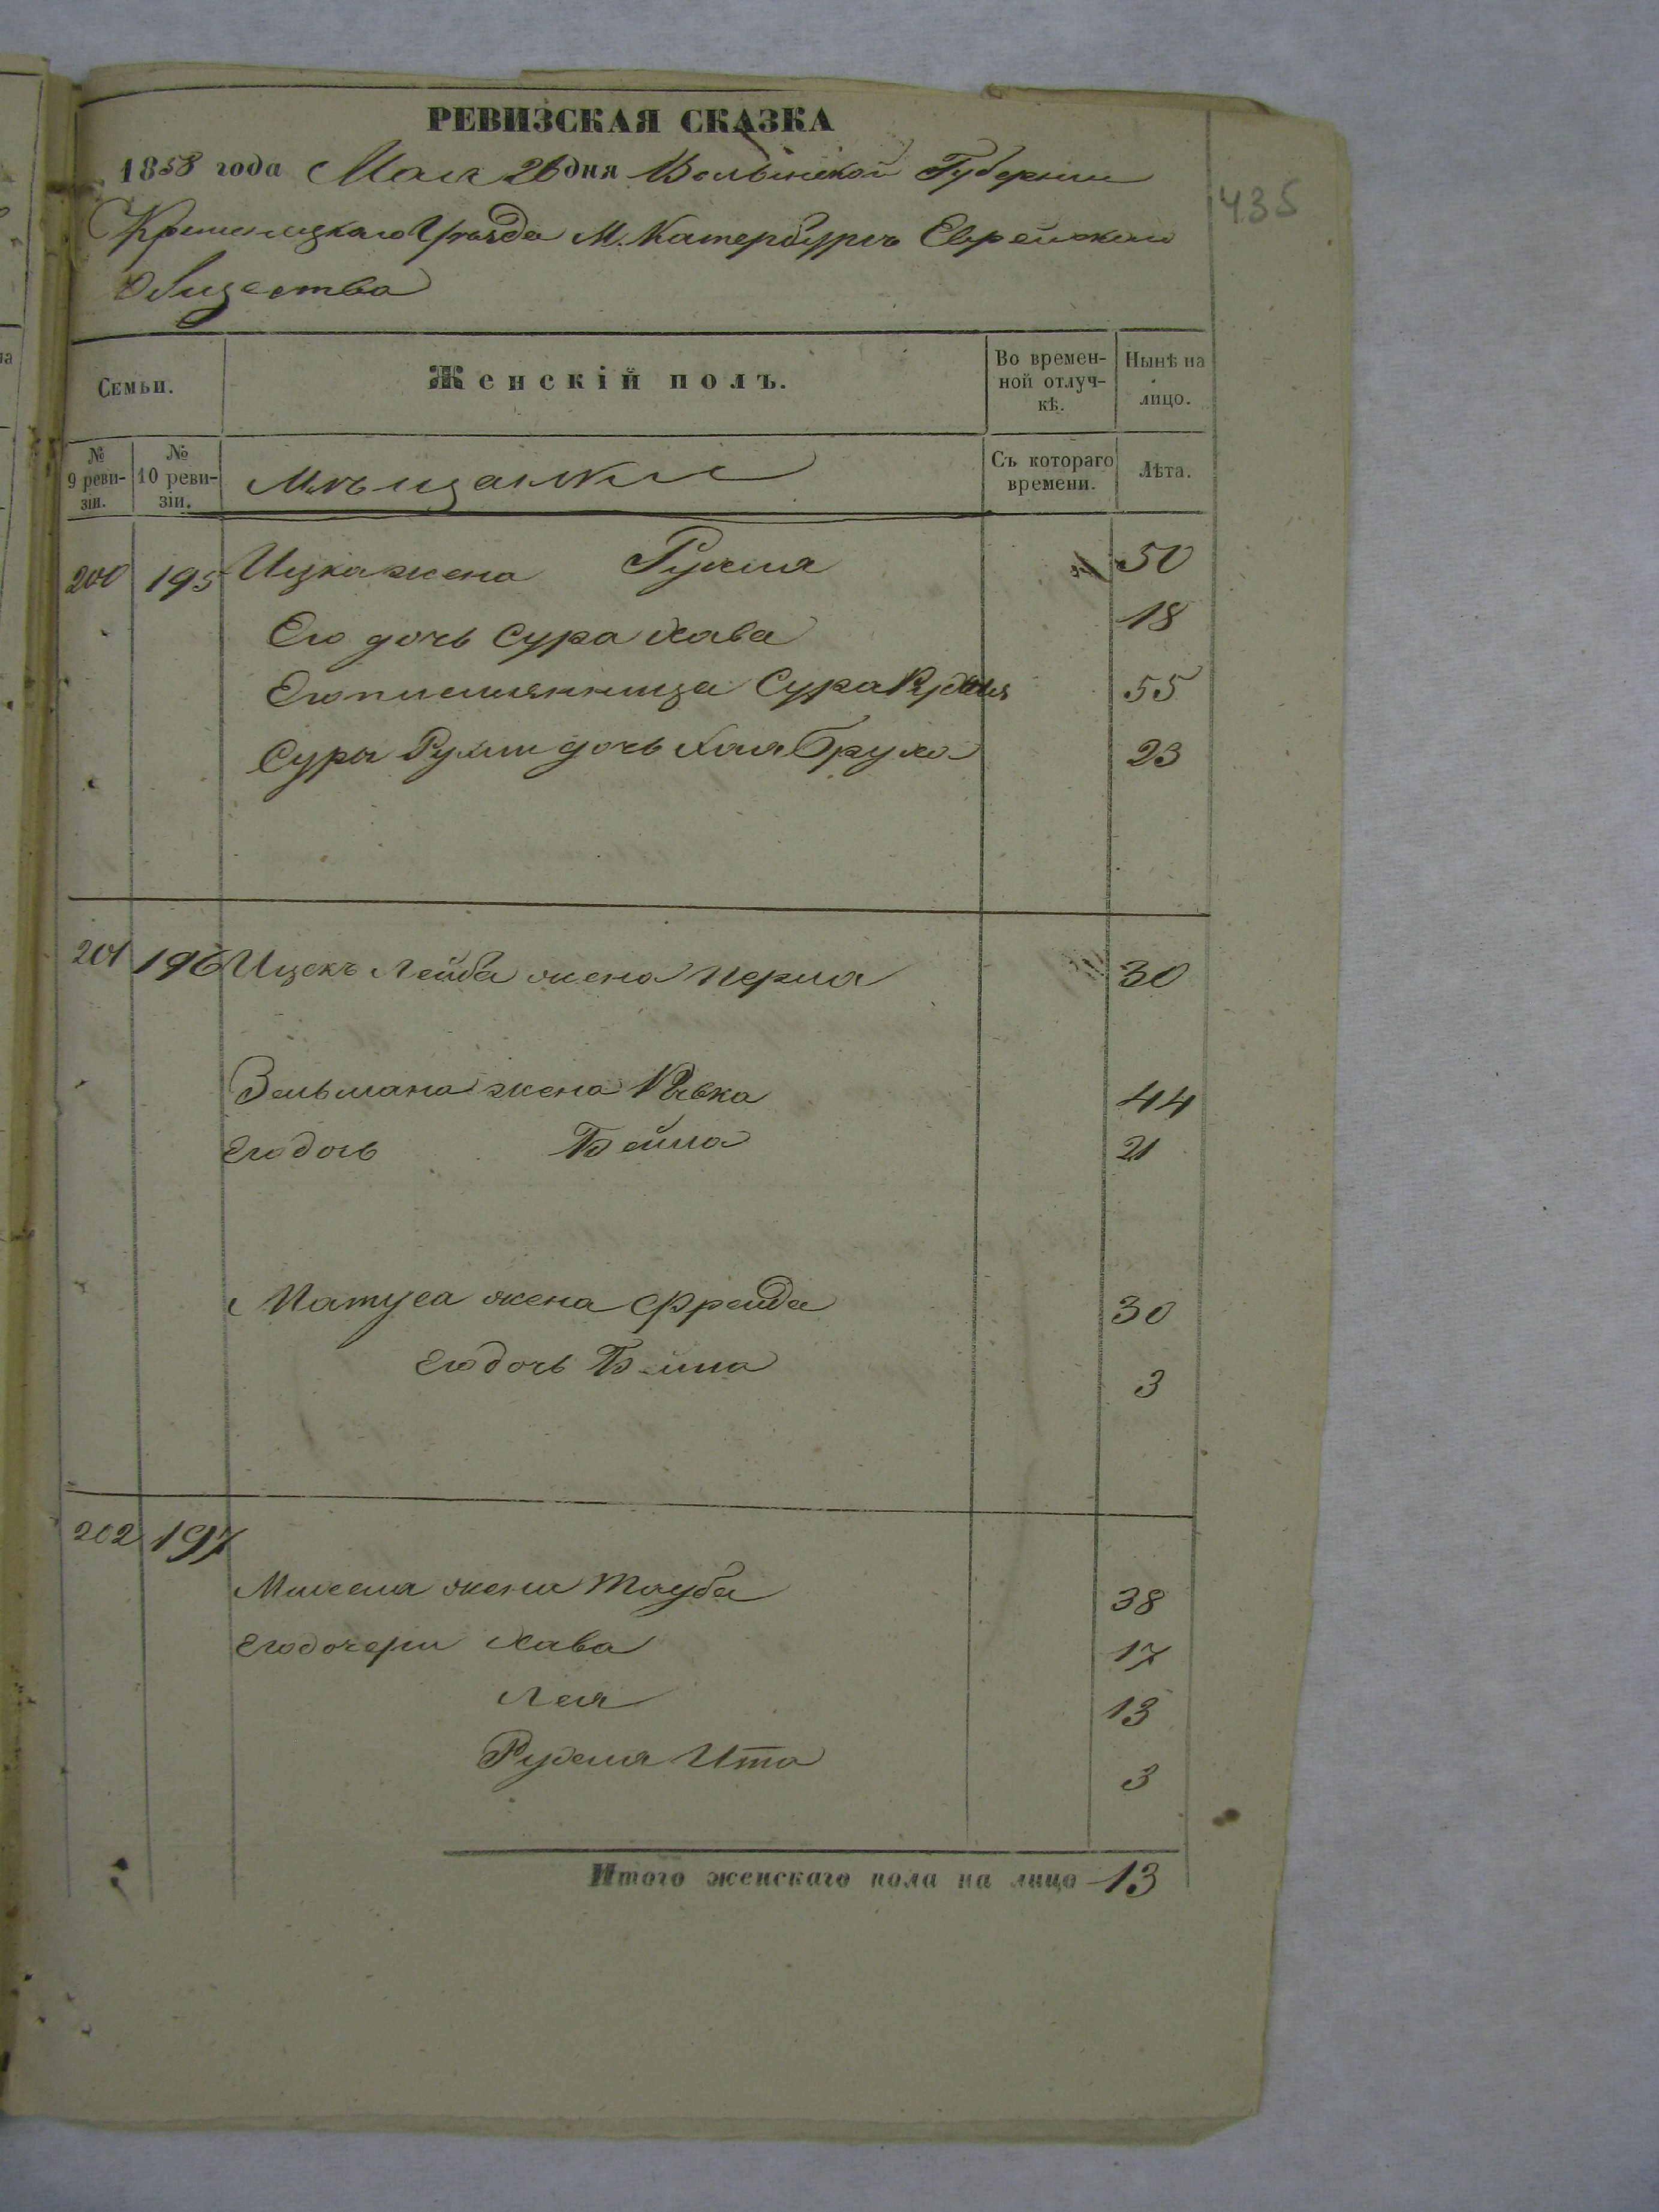 РЕВИЗСКАЯ СКАЗКА
1858 года Мая 26 дня Волынской Губернии
435
Кременецкаго Уѣзда М. Катербургъ Еврейскаго
Общества
Семьи.
Женскій полъ.
Во времен-
ной отлуч-
кѣ.
Нынѣ на
лицо.
№
9 реви-
зіи.
№
10 реви-
зіи.
Мѣщанки
Съ котораго
времени.
Лѣта.
200 195 Ицка жена Рухля 50
Его дочь Сура Хава 18
Его племянница Сура Рухля 55
Суры Рухли дочь Хая Бруха 23
201 196 Ицекъ Лейба жена Перля 30
Зельмана жена Рывка 44
Его дочь Бейла 21
Матуса жена Фрейда 30
Его дочь Бейла 3
202 197
жена Тауба 38
Его дочери Хава 17
Лея 13
Рухля Ита 3
Итого женскаго пола на лицо 13